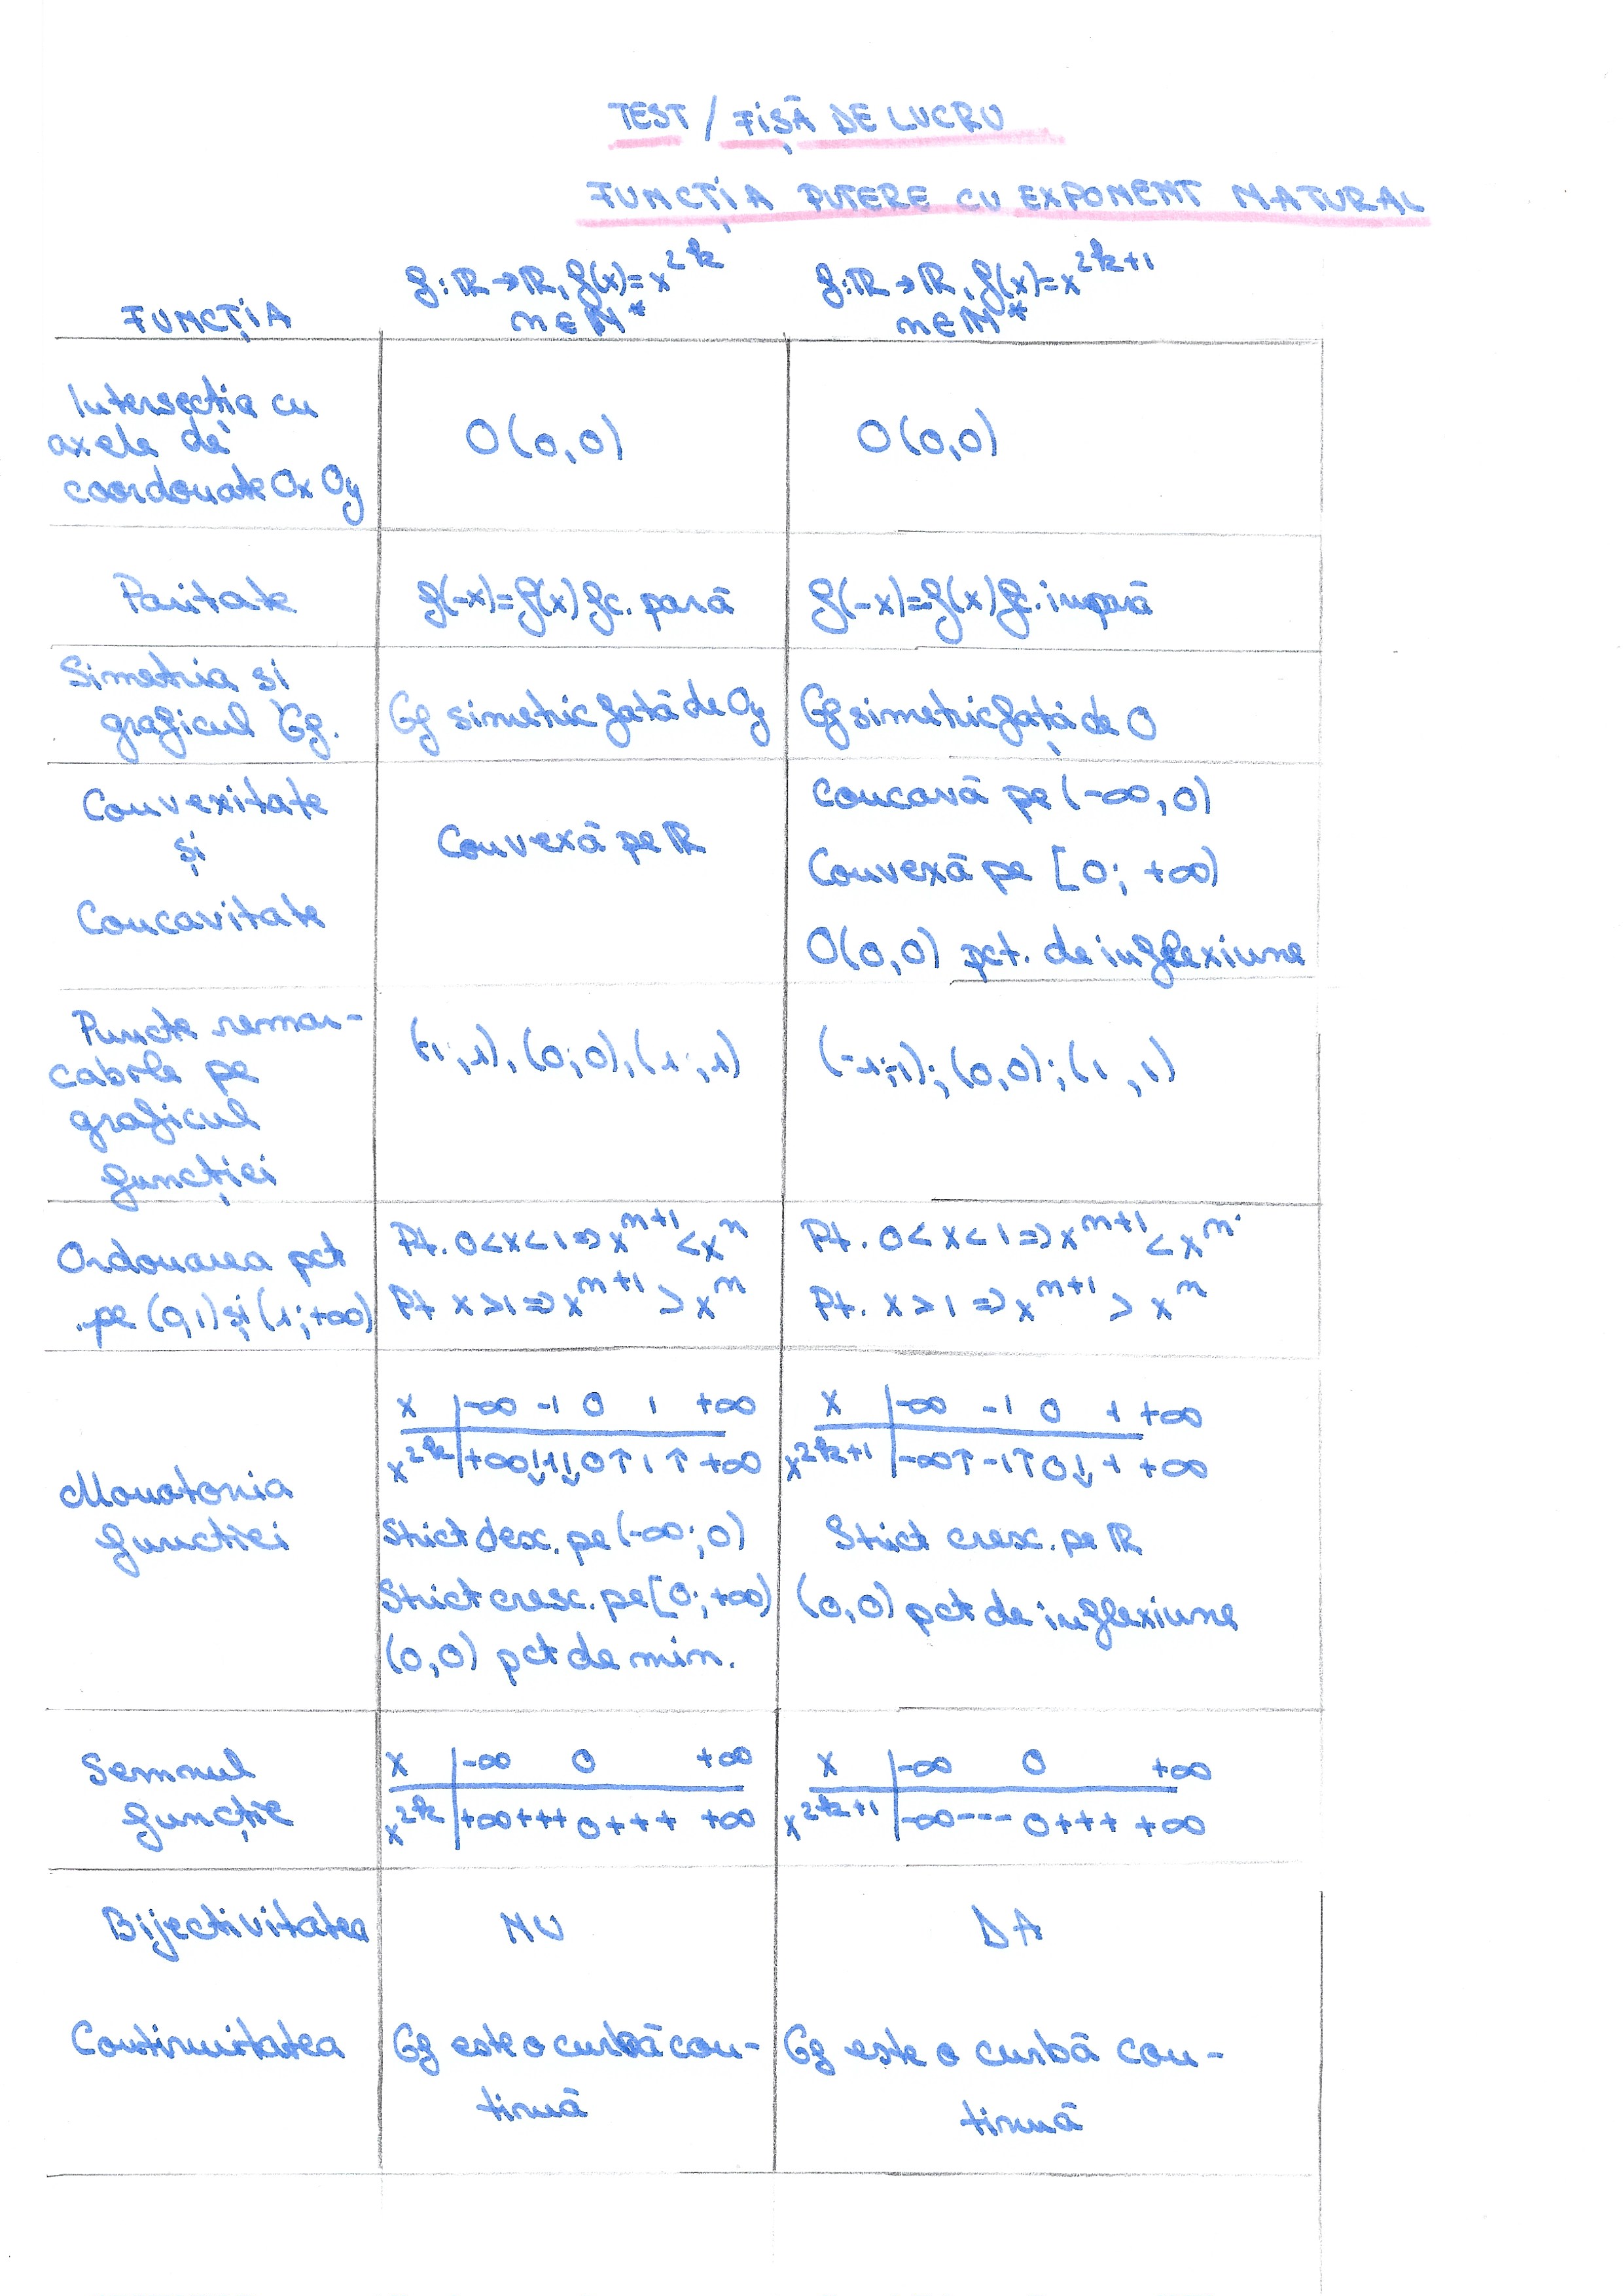 TEST / FIȘĂ DE LUCRU
FUNCȚIA PUTERE CU EXPONENT NATURAL
FUNCȚIA
f:ℝ→ℝ, f(x)=x^2k
n∈ℕ*
f:ℝ→ℝ, f(x)=x^2k+1
n∈ℕ*
Intersecția cu
axele de
coordonate Ox Oy
O(0,0)
O(0,0)
Paritate
f(-x)=f(x) fc. pară
f(-x)=f(x) fc. impară
Simetria si
graficul Gf.
Gf simetric fată de Oy
Gf simetric față de O
Convexitate
și
Concavitate
Convexă pe ℝ
Concavă pe (-∞,0)
Convexă pe [0; +∞)
O(0,0) pct. de inflexiune
Puncte remar-
cabile pe
graficul
funcției
(-1;1), (0;0), (1;1)
(-1;-1); (0,0); (1,1)
Ordonarea pct
pe (0,1) și (1;+∞)
Pt. 0<x<1 ⇒ x^n+1 < x^n
Pt x>1 ⇒ x^n+1 > x^n
Pt. 0<x<1 ⇒ x^n+1 < x^n
Pt. x>1 ⇒ x^n+1 > x^n
Monotonia
functiei
x | -∞ -1 0 1 +∞
x^2k | +∞↓1↓0↑1↑ +∞
Strict desc. pe (-∞;0)
Strict cresc. pe [0;+∞)
(0,0) pct de min.
x | -∞ -1 0 + +∞
x^2k+1 | -∞↑ -1↑0↓ + +∞
Strict cresc. pe ℝ
(0,0) pct de inflexiune
Semnul
funcție
x | -∞ 0 +∞
x^2k | +∞+++ 0+++ +∞
x | -∞ 0 +∞
x^2k+1 | -∞--- 0+++ +∞
Bijectivitatea
NU
DA
Continuitatea
Gf este o curbă con-
tinuă
Gf este o curbă con-
tinuă